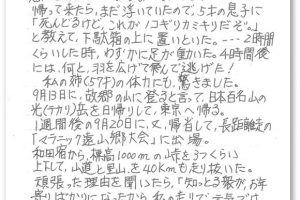 帰って来たら、まだ浮いていたので、5才の息子に
「死んどるけど、これがノコギリカミキリだぞ。」
と教えて、下駄箱の上に置いといた。---2時間
くらいした時、わずかに足が動いた。4時間後
には、何と、羽を広げて飛んで逃げた!
私の姉(57才)の体力にも驚きました。
9月13日に、故郷の山に登ると言って、日本百名山の
光(テカリ)岳を日帰りして、東京へ帰る。
1週間後の9月20日に、又、帰省して、長距離走の
「マラニック遠山郷大会」に出場。
和田宿から、標高1000mの峠を3つくらい
上下して、山道と里山を40kmも走り抜いた。
頑張った理由を聞いたら、「知っとる家が、お年
寄りばかりになったから、私の走りで、元気づけ